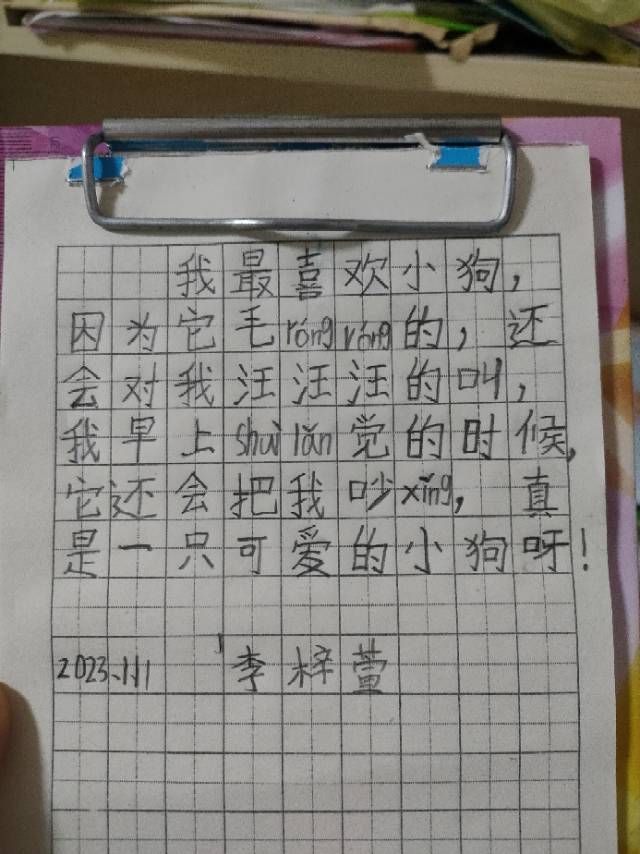 我最喜欢小狗，
因为它毛róngróng的，还
会对我汪汪汪的叫，
我早上shuìlǎn觉的时候，
它还会把我吵xǐng，真
是一只可爱的小狗呀！
2023.1.1 李梓萱